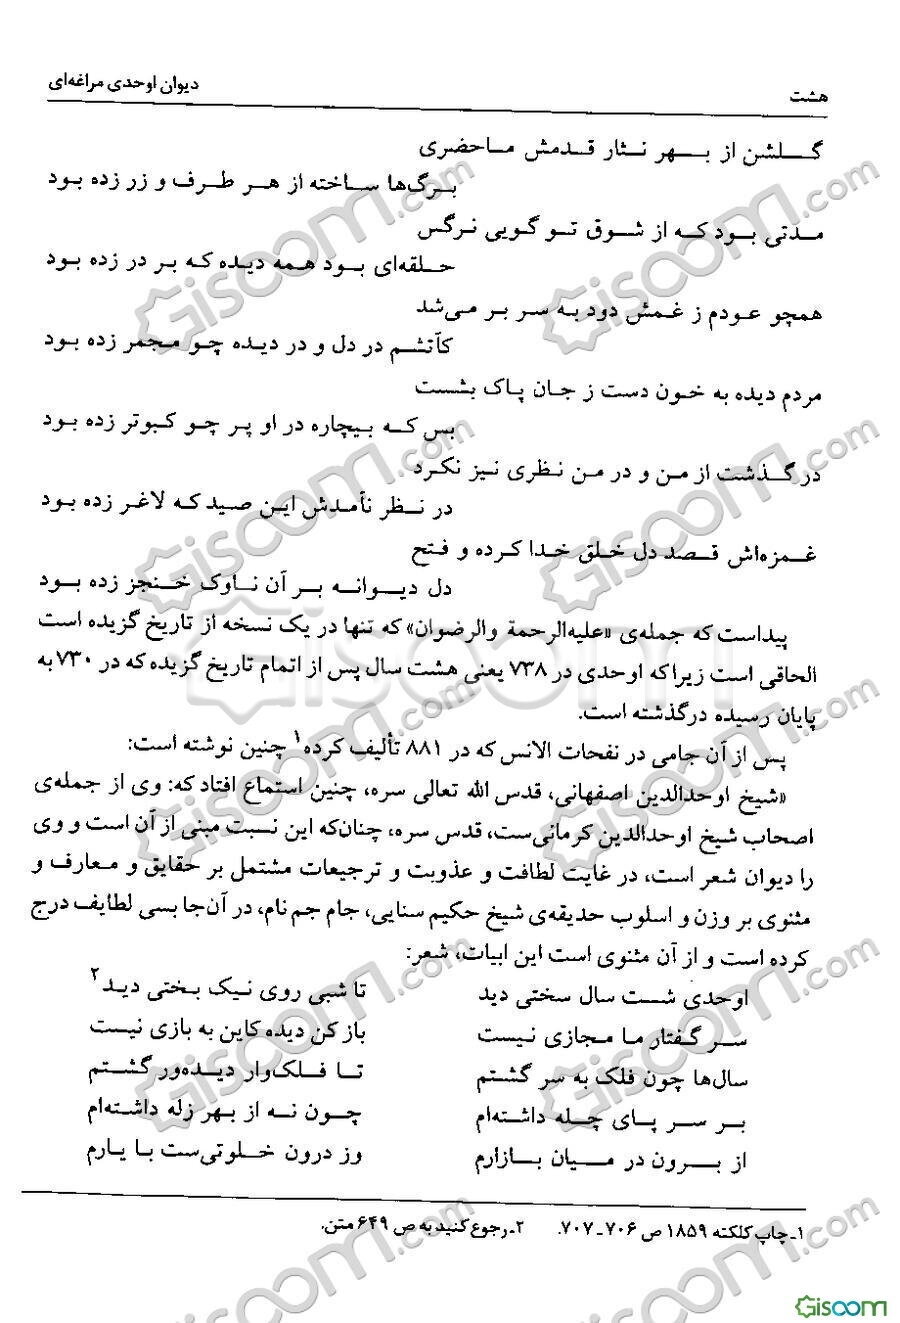 هشت
دیوان اوحدی مراغه‌ای
گلشن از بهر نثار قدمش ماحضری
برگ‌ها ساخته از هر طرف و زر زده بود
مدتی بود که از شوق تو گویی نرگس
حلقه‌ای بود همه دیده که بر در زده بود
همچو عودم ز غمش دود به سر بر می‌شد
کآتشم در دل و در دیده چو مجمر زده بود
مردم دیده به خون دست ز جان پاک بشست
بس که بیچاره در او پر چو کبوتر زده بود
درگذشت از من و در من نظری نیز نکرد
در نظر نآمدش این صید که لاغر زده بود
غمزه‌اش قصد دل خلق خدا کرده و فتح
دل دیوانه بر آن ناوک خنجز زده بود
پیداست که جمله‌ی «علیه‌الرحمة والرضوان» که تنها در یک نسخه از تاریخ گزیده است
الحاقی است زیرا که اوحدی در ۷۳۸ یعنی هشت سال پس از اتمام تاریخ گزیده که در ۷۳۰ به
پایان رسیده درگذشته است.
پس از آن جامی در نفحات الانس که در ۸۸۱ تألیف کرده۱ چنین نوشته است:
«شیخ اوحدالدین اصفهانی، قدس الله تعالی سره، چنین استماع افتاد که: وی از جمله‌ی
اصحاب شیخ اوحدالدین کرمانی‌ست، قدس سره، چنان‌که این نسبت مبنی از آن است و وی
را دیوان شعر است، در غایت لطافت و عذوبت و ترجیعات مشتمل بر حقایق و معارف و
مثنوی بر وزن و اسلوب حدیقه‌ی شیخ حکیم سنایی، جام جم نام، در آن‌جا بسی لطایف درج
کرده است و از آن مثنوی است این ابیات، شعر:
اوحدی شست سال سختی دید تا شبی روی نیک بختی دید۲
سر گفتار ما مجازی نیست باز کن دیده کاین به بازی نیست
سال‌ها چون فلک به سر گشتم تا فلک‌وار دیده‌ور گشتم
بر سر پای چله داشته‌ام چون نه از بهر زله داشته‌ام
از برون در میان بازارم وز درون خلوتی‌ست با یارم
۱ـ چاپ کلکته ۱۸۵۹ ص ۷۰۶ ـ ۷۰۷. ۲ـ رجوع کنید به ص ۶۴۹ متن.
Gisoom.com
Gisoom